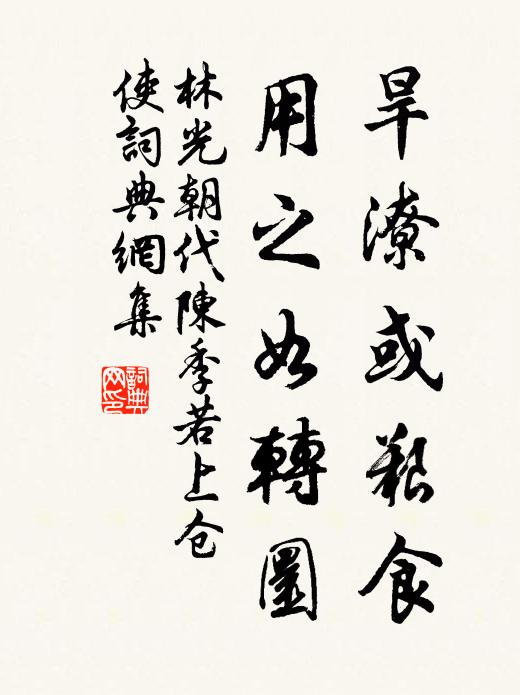 旱潦或艱食
用之如轉圜
林光朝代陳季若上仓
使詞典網集
詞典网印